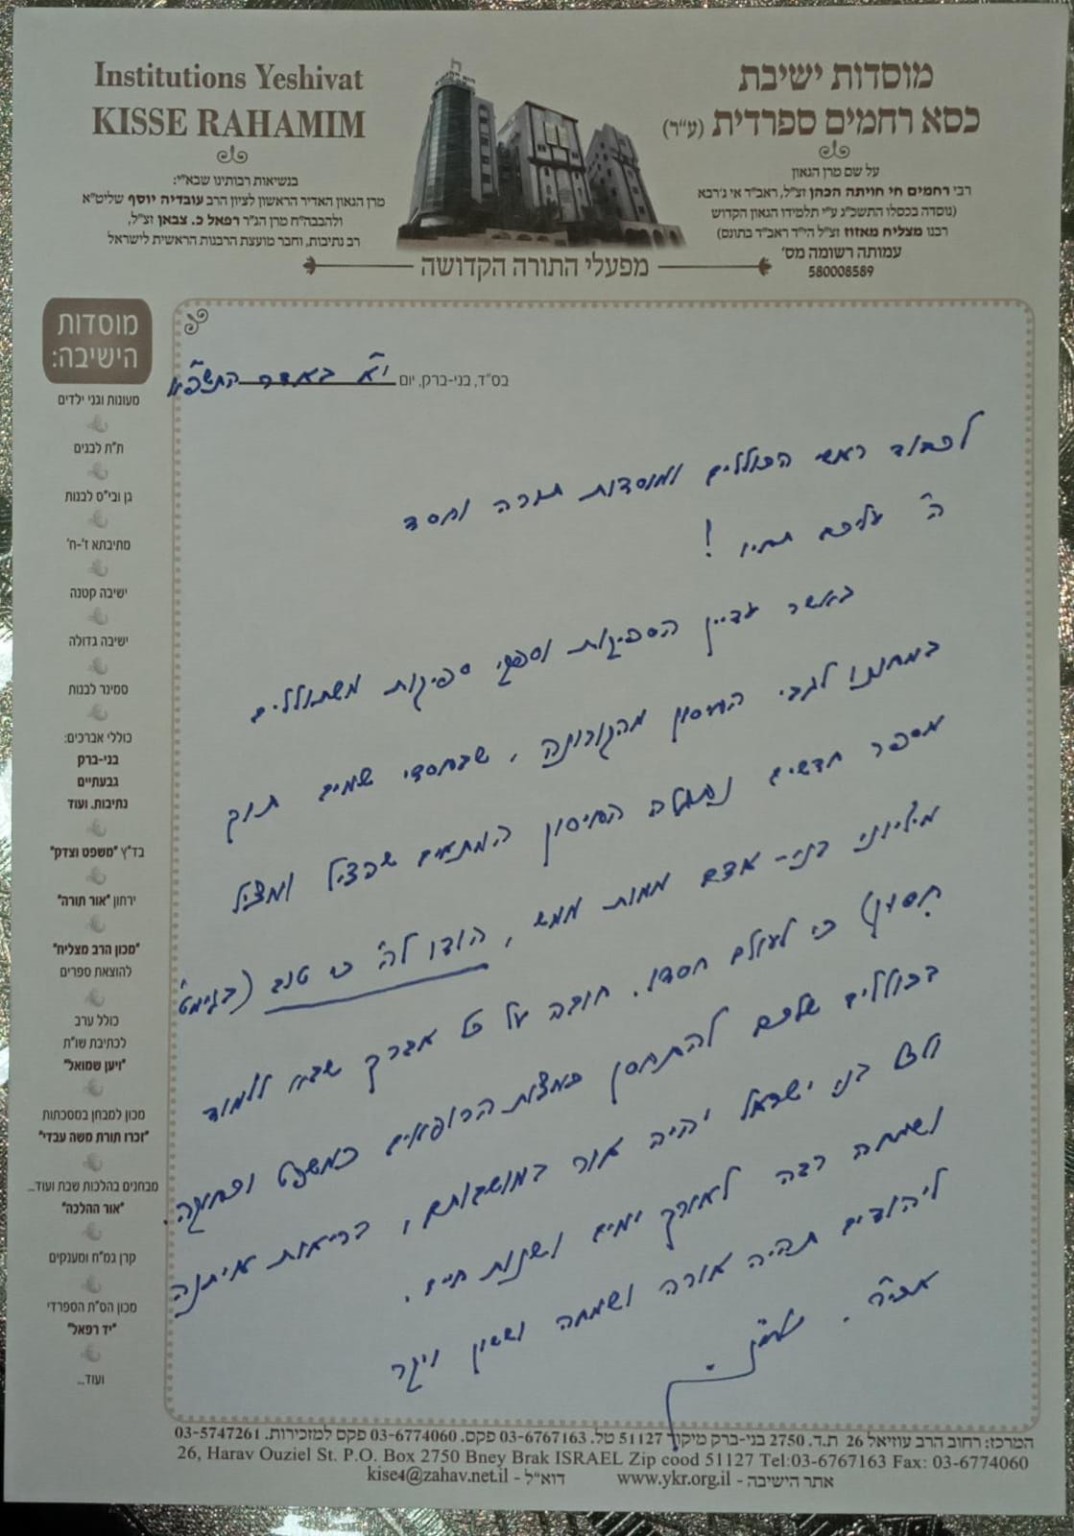 Institutions Yeshivat
KISSE RAHAMIM
בנשיאות רבותינו שבא"י:
מרן הגאון האדיר הראשון לציון הרב עובדיה יוסף שליט"א
ולהבבה"ח מרן הג"ר רפאל כ. צבאן זצ"ל,
רב נתיבות, וחבר מועצת הרבנות הראשית לישראל
מוסדות ישיבת
כסא רחמים ספרדית (ע"ר)
על שם מרן הגאון
רבי רחמים חי חויתה הכהן זצ"ל, ראב"ד אי ג'רבא
(נוסדה בכסלו התשכ"ג ע"י תלמידו הגאון הקדוש
רבנו מצליח מאזוז זצ"ל הי"ד ראב"ד בתונס)
עמותה רשומה מס'
580008589
מפעלי התורה הקדושה
מוסדות
הישיבה:
מעונות וגני ילדים
ת"ת לבנים
גן ובי"ס לבנות
מתיבתא ז'-ח'
ישיבה קטנה
ישיבה גדולה
סמינר לבנות
כוללי אברכים:
בני-ברק
גבעתיים
נתיבות, ועוד
בד"ץ "משפט וצדק"
ירחון "אור תורה"
"מכון הרב מצליח"
להוצאת ספרים
כולל ערב
לכתיבת שו"ת
"ויען שמואל"
מכון למבחן במסכתות
"זכרו תורת משה עבדי"
מבחנים בהלכות שבת ועוד...
"אור ההלכה"
קרן גמ"ח ומענקים
מכון הס"ת הספרדי
"יד רפאל"
ועוד...
בס"ד, בני-ברק, יום י"א באדר התשפ"א
לכבוד ראשי הכוללים ומוסדות תורה וחסד
ה' עליכם יחיו !
באשר עדיין הספיקות וספקי ספיקות משתוללים
במחנינו לגבי החיסון מהקורונה, שבחסדי שמים תוך
מספר חדשים נתגלה החיסון המתאים שהציל ומציל
מיליוני בני-אדם ממות ממש, הודו לה' כי טוב (בגימט'
חסון) כי לעולם חסדו. חובה על כל אברך שבא ללמוד
בכוללים שלכם להתחסן כמצות הרופאים כמשפט וכחוקה.
ולכל בני ישראל יהיה אור במושבותם, בריאות איתנה
ושמחה רבה לאורך ימים ושנות חיים.
ליהודים תהיה אורה ושמחה וששון ויקר
אכי"ר.
המרכז: רחוב הרב עוזיאל 26 ת.ד. 2750 בני-ברק מיקוד 51127 טל. 03-6767163 פקס. 03-6774060 פקס למזכירות. 03-5747261
26, Harav Ouziel St. P.O. Box 2750 Bney Brak ISRAEL Zip cood 51127 Tel:03-6767163 Fax: 03-6774060
אתר הישיבה - www.ykr.org.il דוא"ל - kise4@zahav.net.il